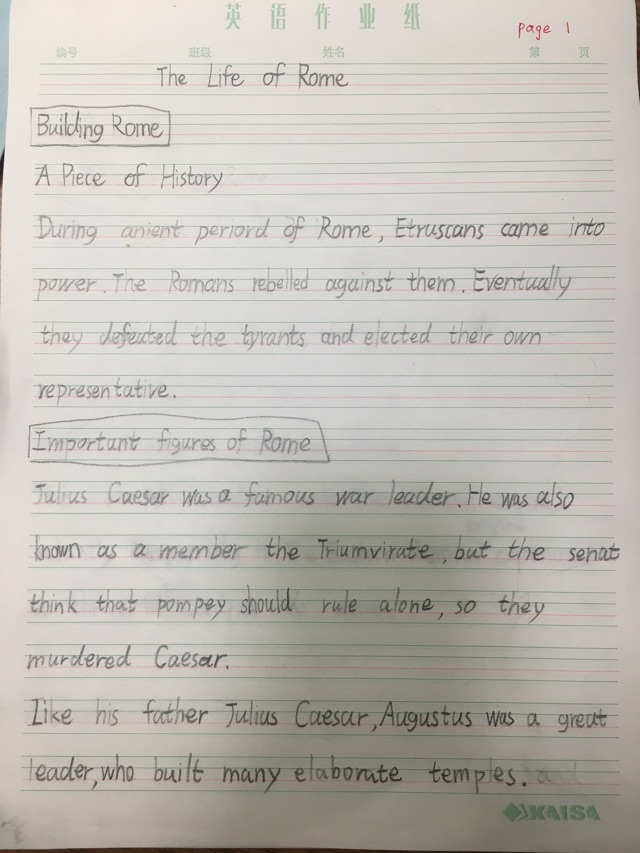 英语作业纸
page 1
编号 班级 姓名 第 页
The Life of Rome
Building Rome
A Piece of History
During anient periord of Rome, Etruscans came into
power. The Romans rebelled against them. Eventually
they defeated the tyrants and elected their own
representative.
Important figures of Rome
Julius Caesar was a famous war leader. He was also
known as a member the Triumvirate, but the senat
think that pompey should rule alone, so they
murdered Caesar.
Like his father Julius Caesar, Augustus was a great
leader, who built many elaborate temples.
KAISA